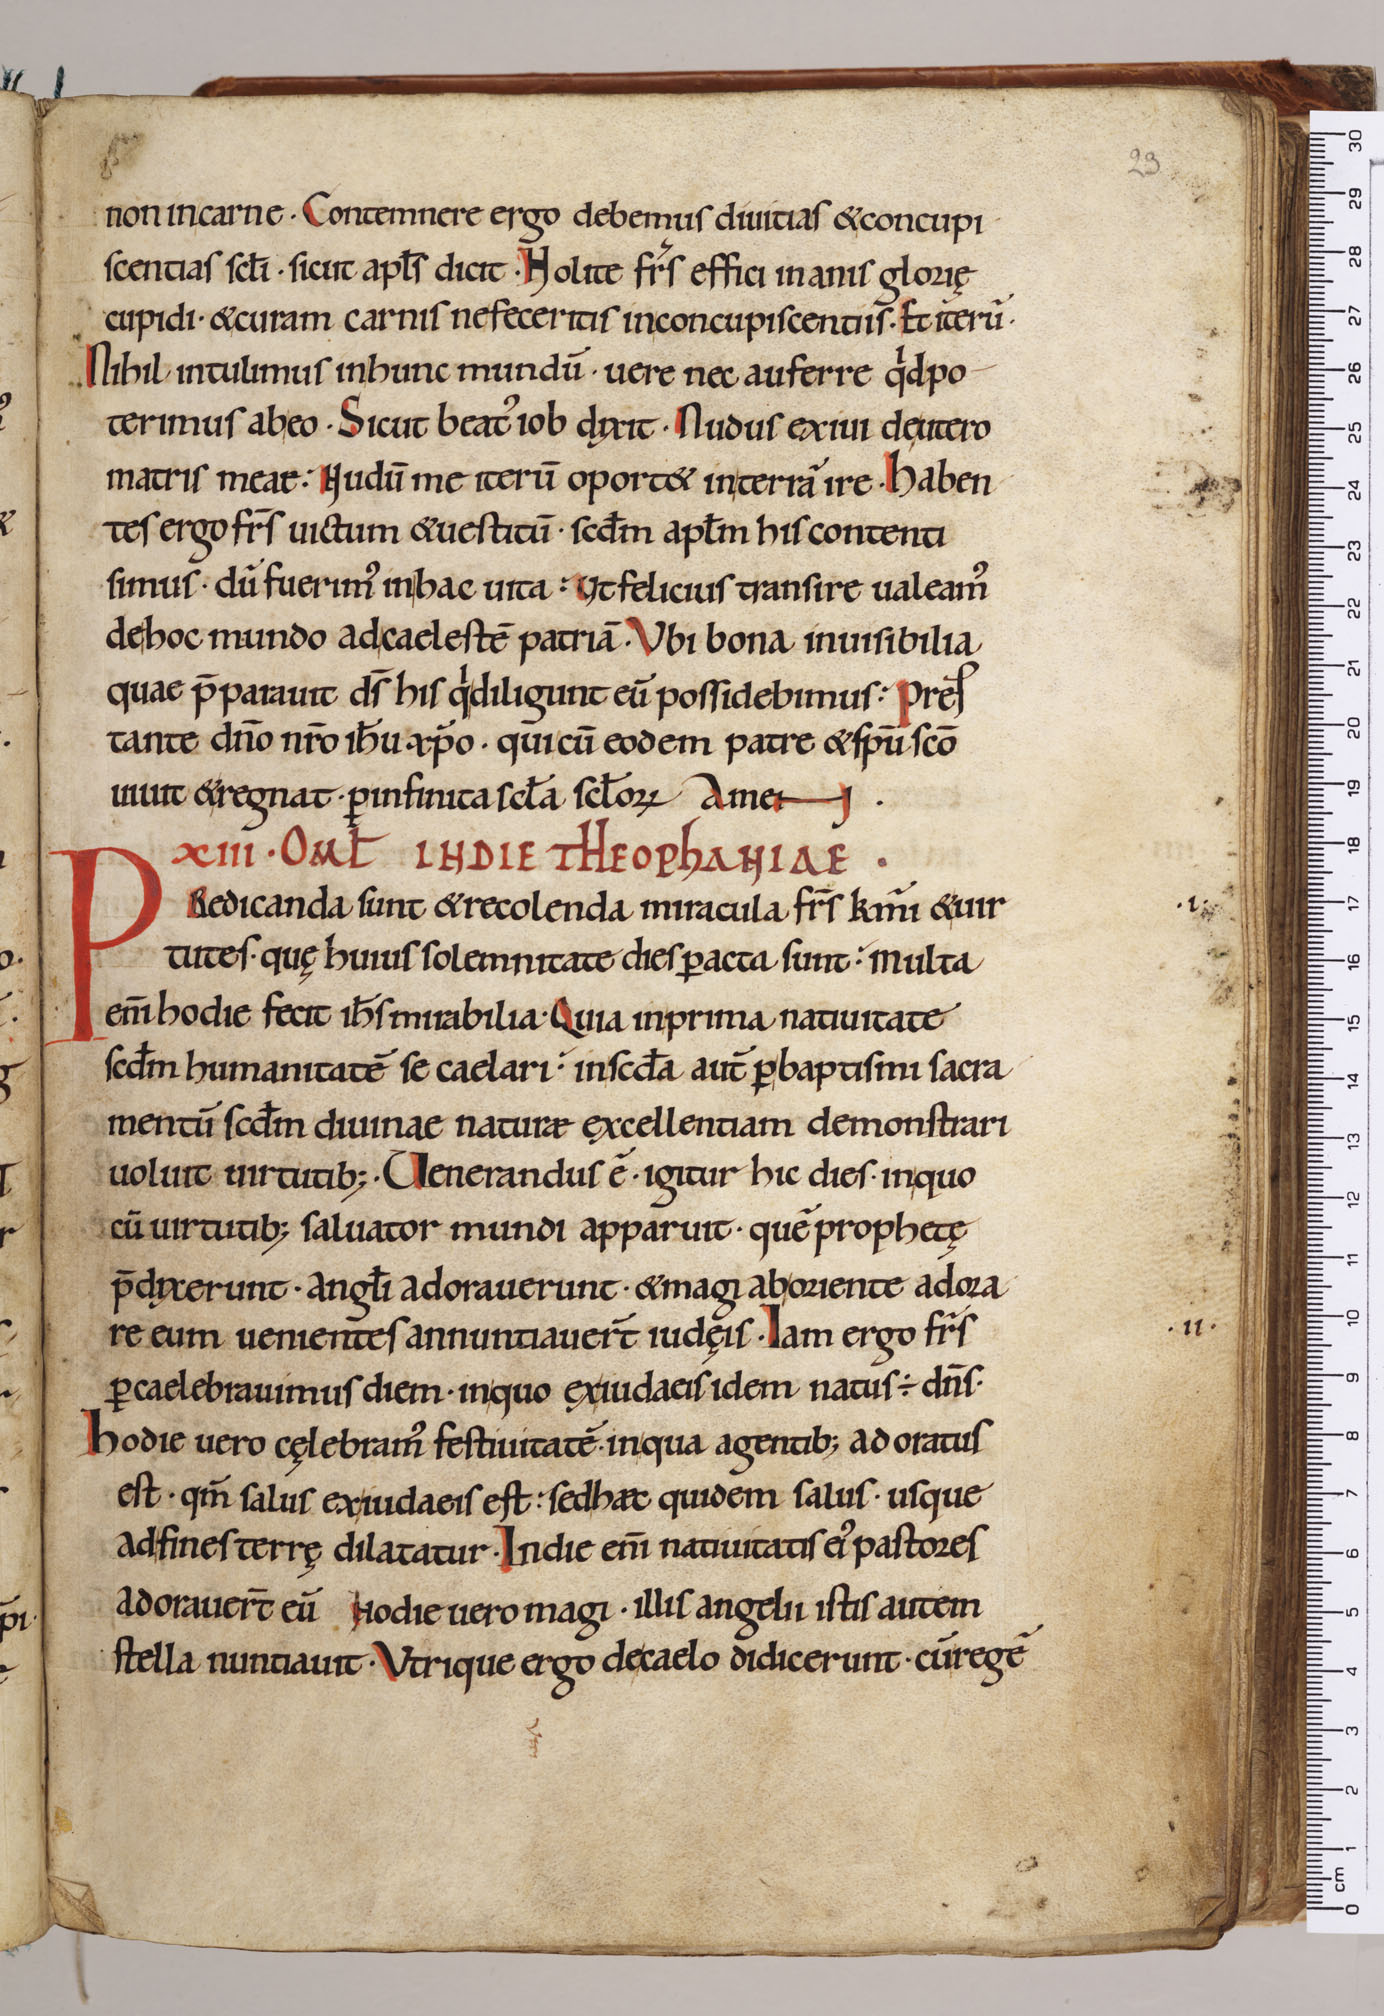 23
non in carne · Contemnere ergo debemus diuitias & concupi
scentias scłi · sicut apłs dicit · Nolite fr̄s effici inanis glorię
cupidi · & curam carnis ne feceritis in concupiscentiis · Et iterū ·
Nihil intulimus in hunc mundū · uere nec auferre qd po
terimus ab eo · Sicut beatꝰ iob dixit · Nudus exiui de utero
matris meae : Nudū me iterū oport& in terrā ire · haben
tes ergo fr̄s uictum & uestitū · scđm apłm his contenti
simus · dū fuerimꝰ in hac uita : Ut felicius transire ualeamꝰ
de hoc mundo ad caelestē patriā · Vbi bona inuisibilia
quae p̄parauit d̄s his qui diligunt eū possidebimus : Pres
tante dn̄o nr̄o ihū xp̄o · qui cū eodem patre & sp̄u scō
uiuit & regnat · ꝑ infinita scła scłoꝝ Amen ·
XIII · OMŁ IN DIE THEOPHANIAE ·
PRedicanda sunt & recolenda miracula fr̄s km̄i & uir
·i·
tutes · quę huius solemnitate dies ꝑacta sunt : Multa
eni̅ hodie fecit ih̄s mirabilia · Quia in prima natiuitate
scđm humanitatē se caelari : in scđa aut̄ ꝑ baptismi sacra
mentū scđm diuinae naturæ excellentiam demonstrari
uoluit uirtutib; · Uenerandus ē · igitur hic dies · in quo
cū uirtutib; saluator mundi apparuit · quē prophetę
p̄dixerunt · angłi adorauerunt · & magi ab oriente adora
re eum uenientes annuntiauert̄ iudęis · Iam ergo fr̄s
·ii·
ꝑcaelebrauimus diem · in quo ex iudaeis idem natus ÷ dn̄s ·
hodie uero cęlebramꝰ festiuitatē · in qua a gentib; adoratus
est · qm̄ salus ex iudaeis est : sed hæc quidem salus · usque
ad fines terrę dilatatur · In die eni̅ natiuitatis eiꝰ pastores
adorauert̄ eū Hodie uero magi · illis angelu istis autem
stella nuntiauit · Vtrique ergo de caelo didicerunt · cū regē